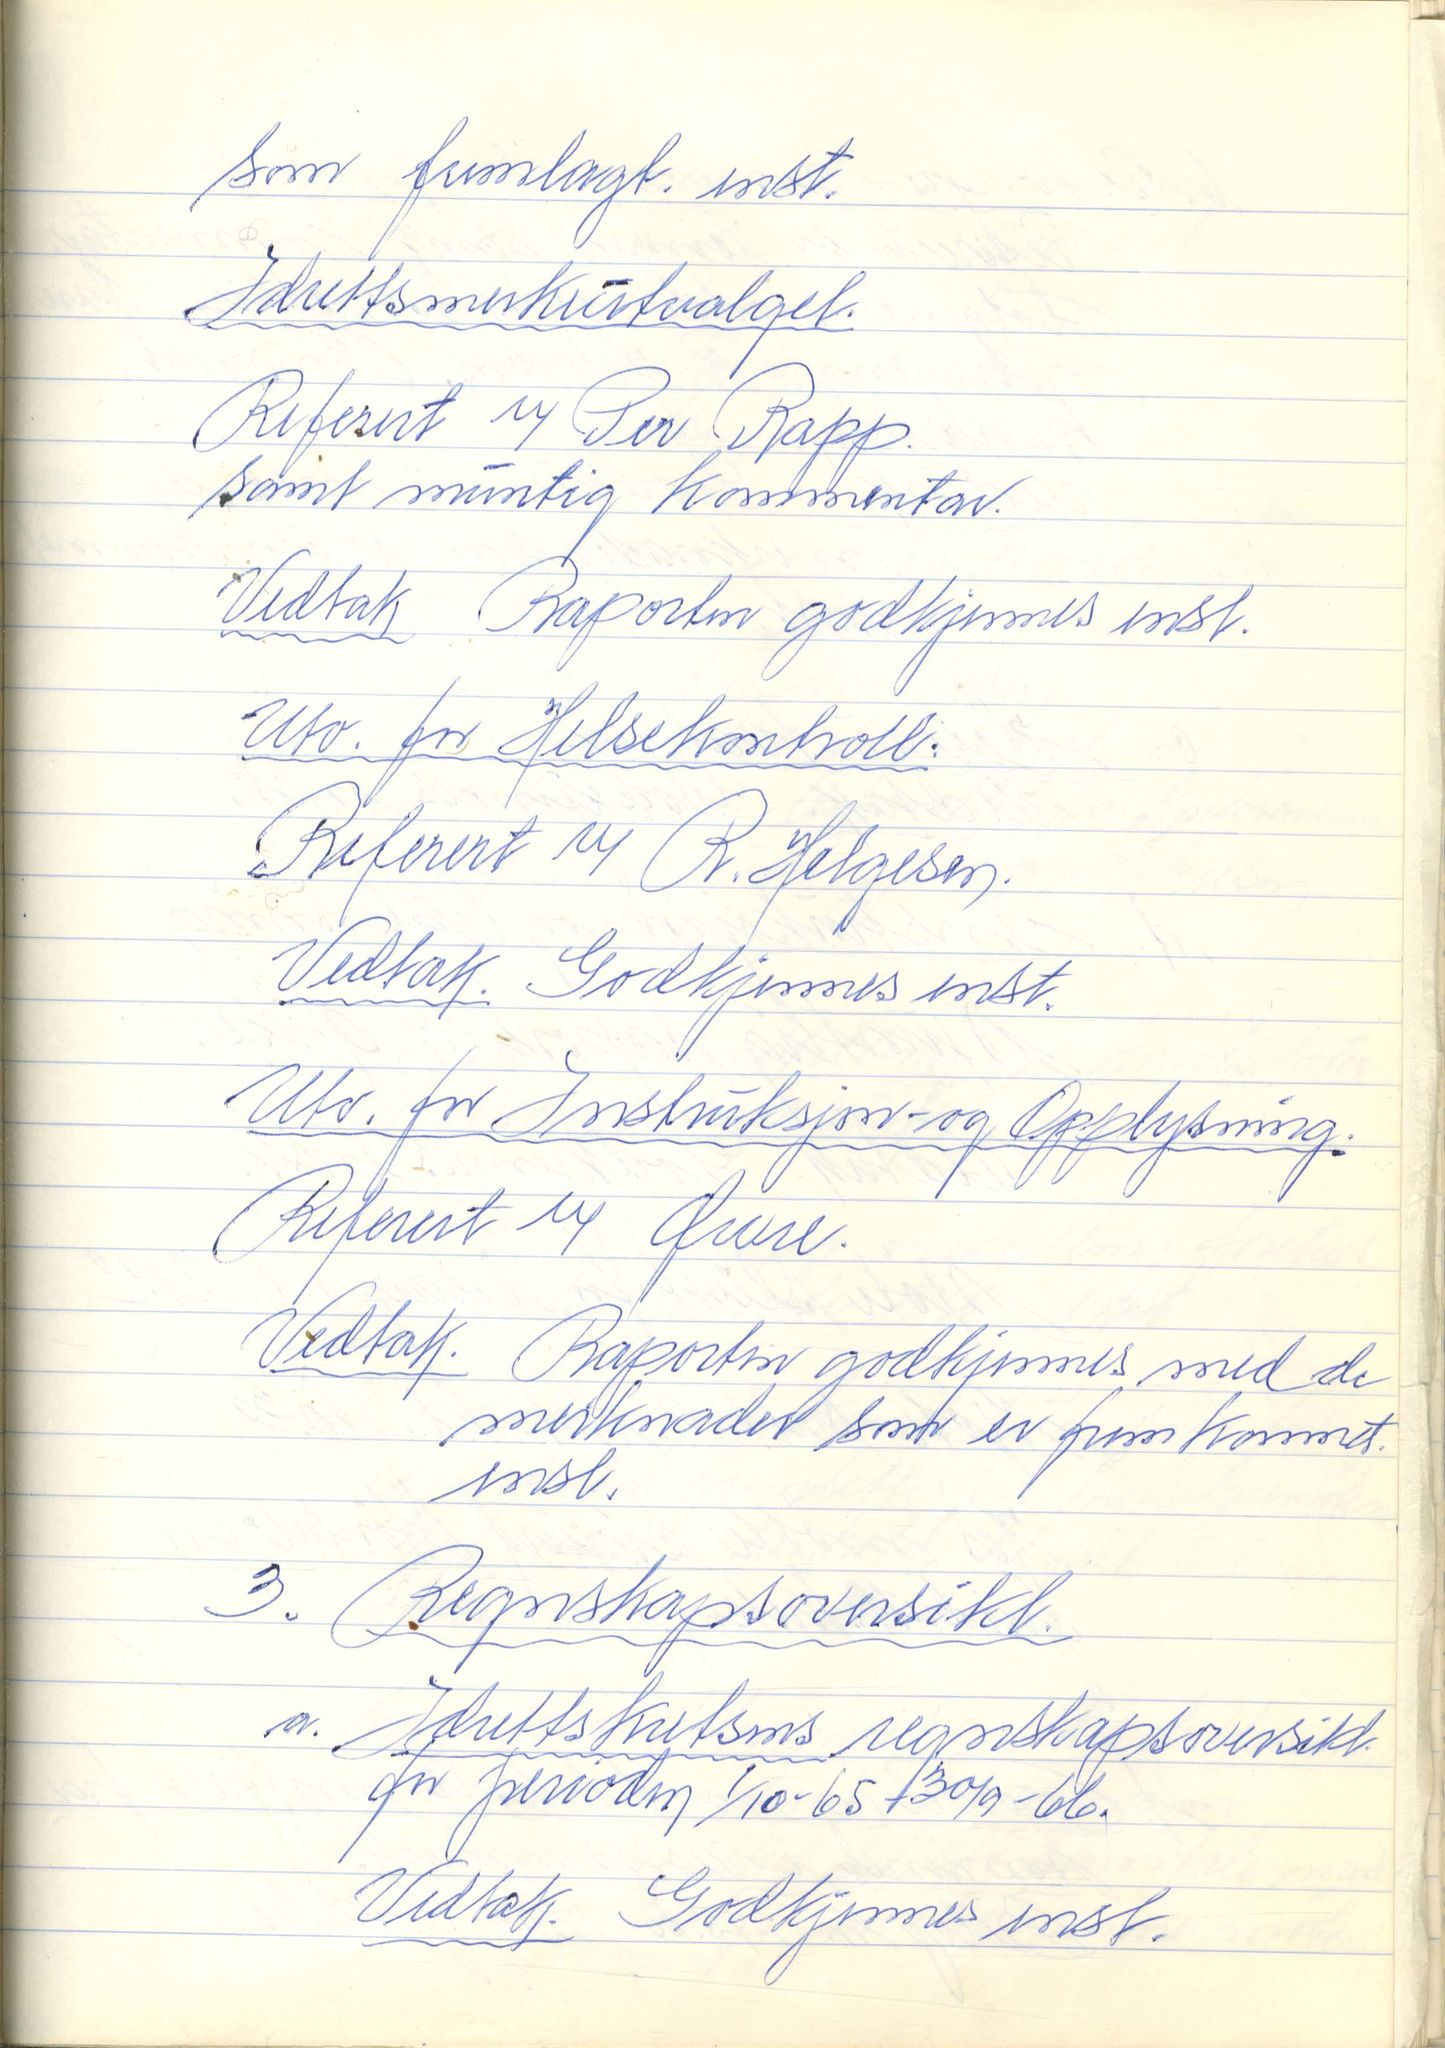 som fremlagt. enst.
Idrettsmerkeutvalget.
Referert v/ Per Rapp.
samt muntlig kommentar.
Vedtak Raporten godkjennes enst.
Utv. for Helsekontroll.
Referert v/ R. Helgesen.
Vedtak. Godkjennes enst.
Utv. for Instruksjon- og Opplysning.
Referert v/
Vedtak. Raporten godkjennes med de
merknader som er fremkommet.
enst.
3. Regnskapsoversikt.
a. Idrettskretsens regnskapsoversikt.
for perioden 1/10-65 + 30/9-66.
Vedtak. Godkjennes enst.